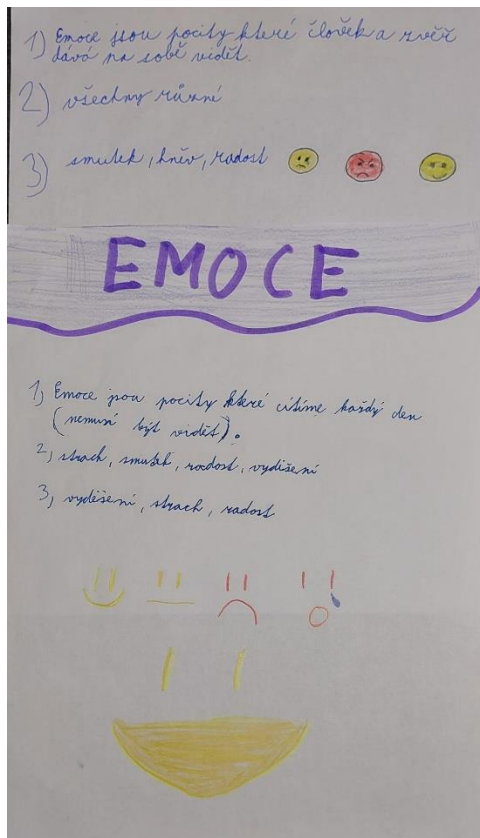 1) Emoce jsou pocity které člověk a zvěř
dává na sobě vidět.
2) všechny různé
3) smutek, hněv, radost
EMOCE
1, Emoce jsou pocity které cítíme každý den
(nemusí být vidět).
2, strach, smutek, radost, vyděšení
3, vyděšení, strach, radost